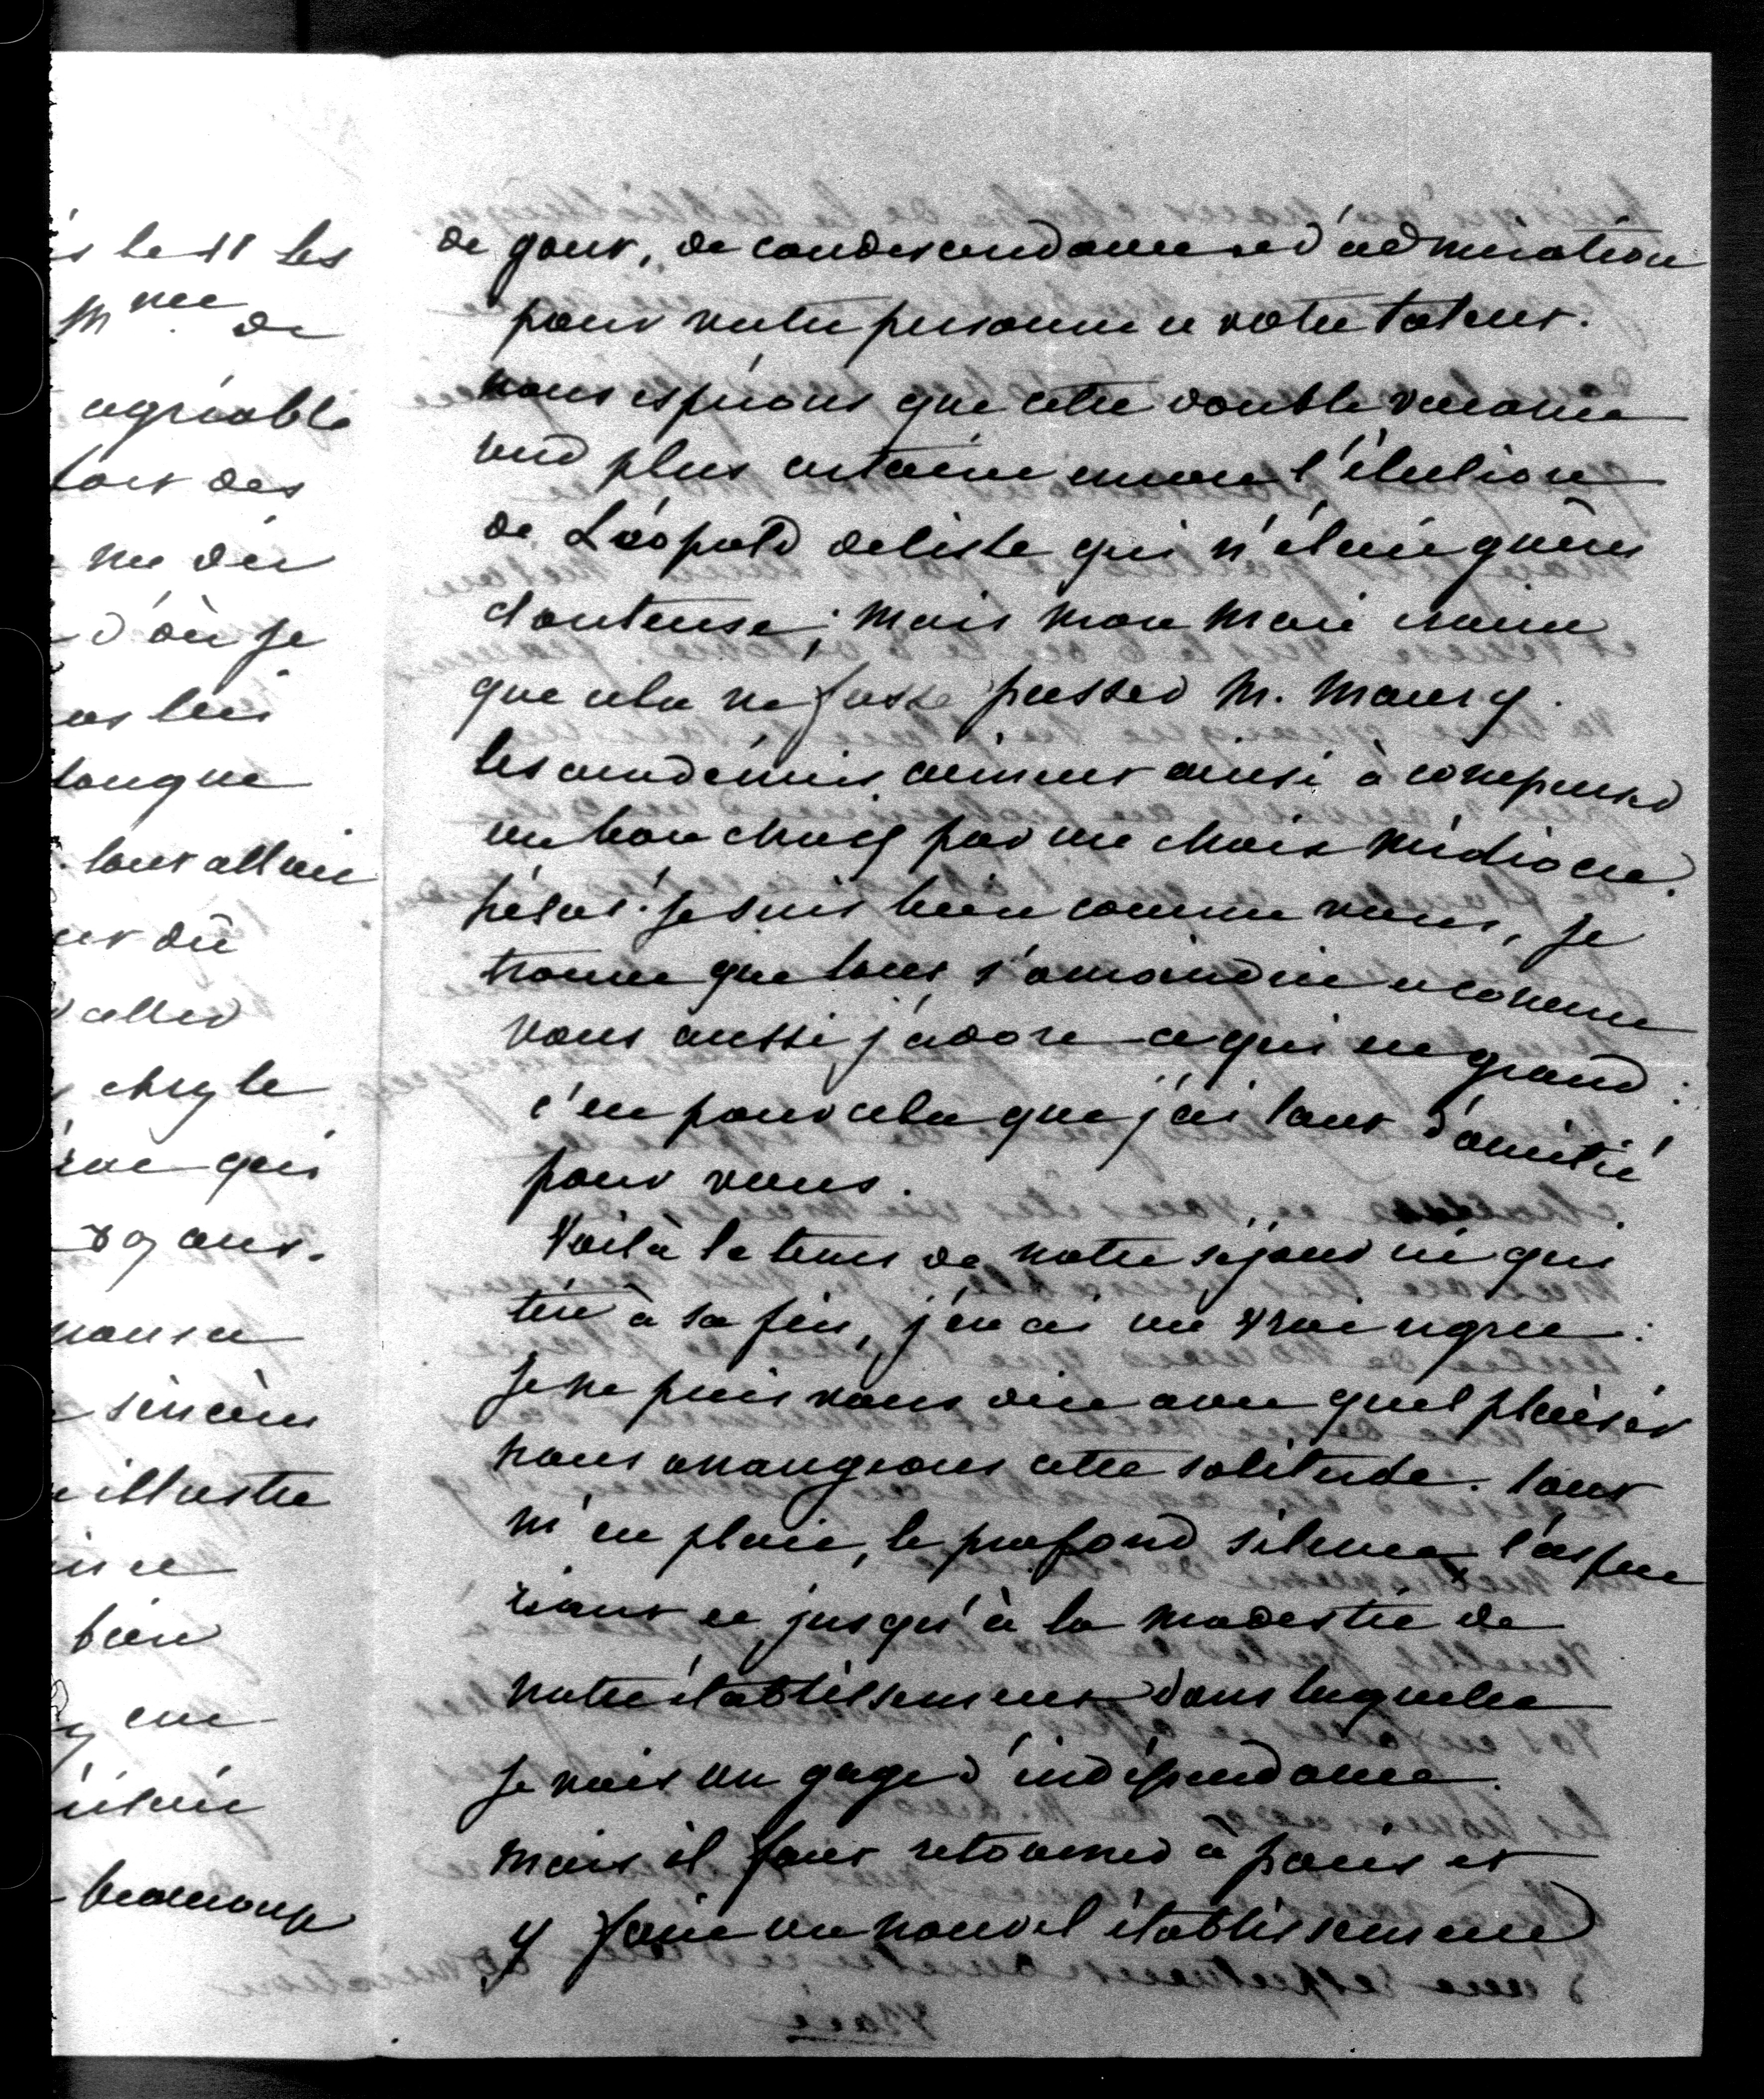 is le 18 les
Mme de
agréable
tait des
d'où je
pas lui
longue
. tout allait
eut dû
d'aller
chez le
qui
ayant.
sincère
illustre
bien
beaucoup
de gout, de condescendance et d'admiration
pour votre personne et votre talent.
nous espérons que cette double vacance
rend plus certaine encore l'élection
de Léopold delisle qui n'était guère
douteuse; mais mon mari craint
que cela ne fasse passer M. Maury.
les académies aiment ainsi à compenser
un bon choix par un choix médiocre.
hélas! je suis bien comme vous, je
trouve que tout s'amoindrit et comme
vous aussi j'adore ce qui est grand:
c'est pour cela que j'ai tant d'amitié
pour vous.
Voilà le tems de notre séjour ici qui
tire à sa fin, j'en ai un vrai regret:
je ne puis vous dire avec quel plaisir
nous arrangions cette solitude. tout
m'en plait, le profond silence, l'aspect
riant et jusqu'à la modestie de
notre établissement dans laquelle
je vois un gage d'indépendance.
mais il faut retourner à paris et
y faire un nouvel établissement